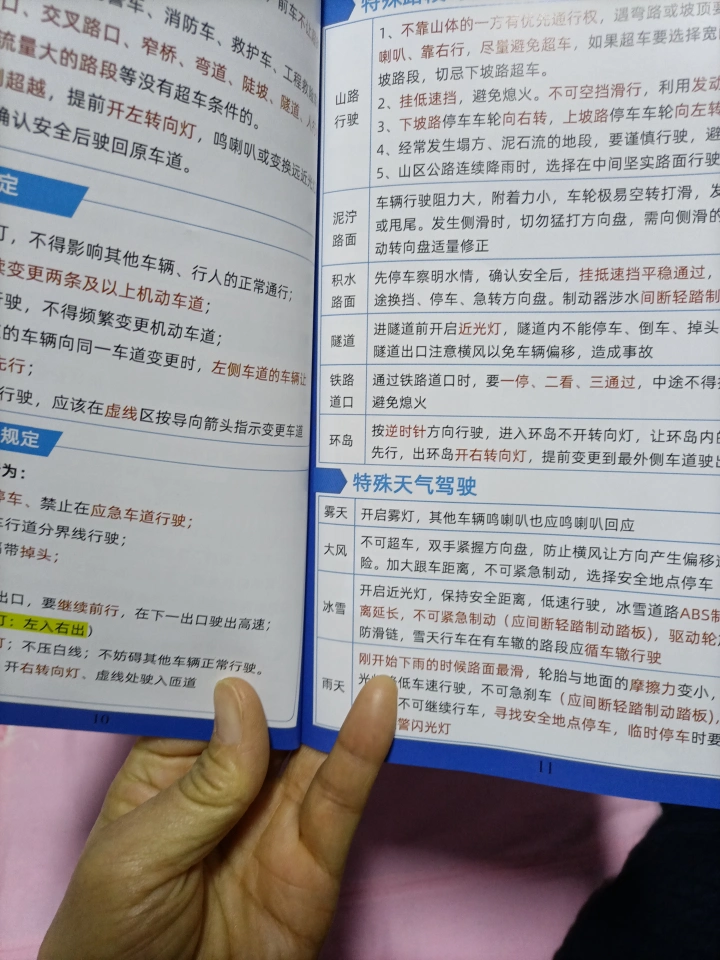 警车、消防车、救护车、工程救险
口、交叉路口、窄桥、弯道、陡坡、隧道、人
流量大的路段等没有超车条件的。
超越，提前开左转向灯，鸣喇叭或变换远近光
确认安全后驶回原车道。
定
灯，不得影响其他车辆、行人的正常通行；
变更两条及以上机动车道；
行驶，不得频繁变更机动车道；
的车辆向同一车道变更时，左侧车道的车辆让
先行；
行驶，应该在虚线区按导向箭头指示变更车道
规定
为：
停车、禁止在应急车道行驶；
车行道分界线行驶；
带掉头；
出口，要继续前行，在下一出口驶出高速；
灯：左入右出）
；不压白线；不妨碍其他车辆正常行驶。
开右转向灯、虚线处驶入匝道
10
特殊路
山路
行驶
1、不靠山体的一方有优先通行权，遇弯路或坡顶要
喇叭、靠右行，尽量避免超车，如果超车要选择宽
坡路段，切忌下坡路超车。
2、挂低速挡，避免熄火。不可空挡滑行，利用发动
3、下坡路停车车轮向右转，上坡路停车车轮向左转
4、经常发生塌方、泥石流的地段，要谨慎行驶，避
5、山区公路连续降雨时，选择在中间坚实路面行驶
泥泞
路面
车辆行驶阻力大，附着力小，车轮极易空转打滑，发
或甩尾。发生侧滑时，切勿猛打方向盘，需向侧滑的
动转向盘适量修正
积水
路面
先停车察明水情，确认安全后，挂抵速挡平稳通过，
途换挡、停车、急转方向盘。制动器涉水间断轻踏制
隧道
进隧道前开启近光灯，隧道内不能停车、倒车、掉头
隧道出口注意横风以免车辆偏移，造成事故
铁路
道口
通过铁路道口时，要一停、二看、三通过，中途不得
避免熄火
环岛
按逆时针方向行驶，进入环岛不开转向灯，让环岛内的
先行，出环岛开右转向灯，提前变更到最外侧车道驶出
特殊天气驾驶
雾天
开启雾灯，其他车辆鸣喇叭也应鸣喇叭回应
大风
不可超车，双手紧握方向盘，防止横风让方向产生偏移
险。加大跟车距离，不可紧急制动，选择安全地点停车
冰雪
开启近光灯，保持安全距离，低速行驶，冰雪道路ABS制
离延长，不可紧急制动（应间断轻踏制动踏板），驱动轮
防滑链，雪天行车在有车辙的路段应循车辙行驶
雨天
刚开始下雨的时候路面最滑，轮胎与地面的摩擦力变小，
光 低车速行驶，不可急刹车（应间断轻踏制动踏板），
不可继续行车，寻找安全地点停车，临时停车时要
警闪光灯
11